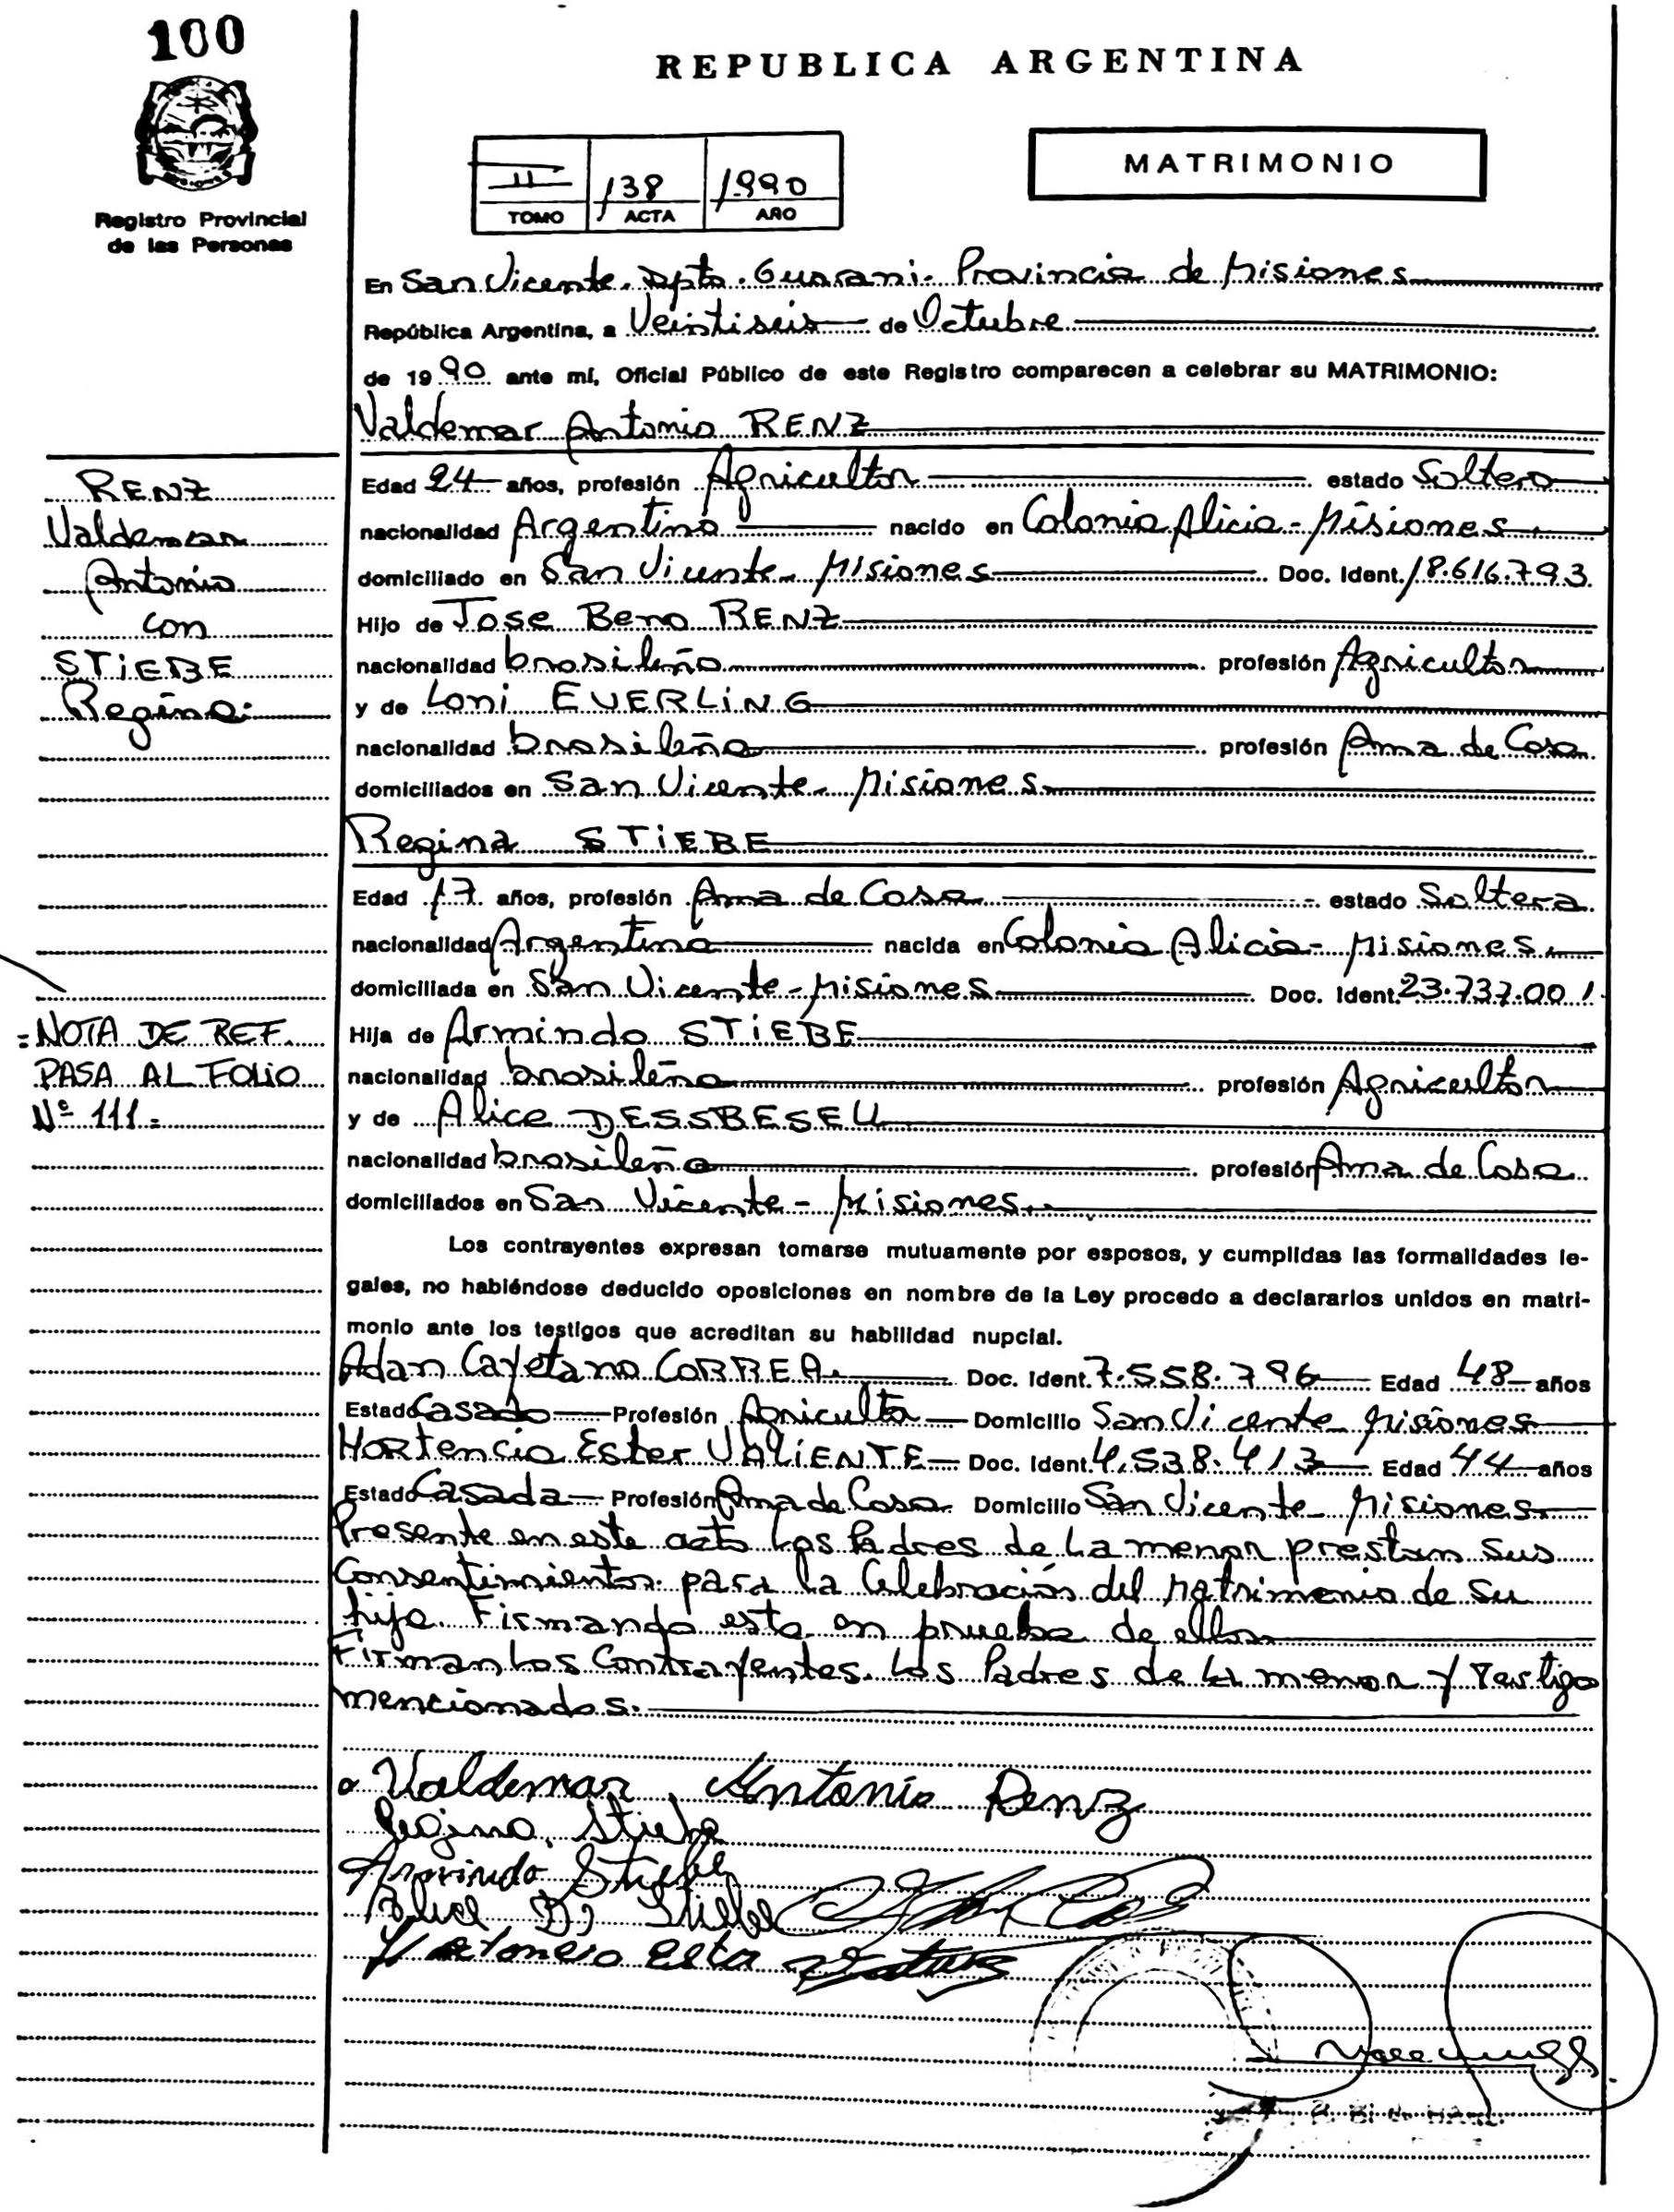 100
Registro Provincial
de las Personas
REPUBLICA ARGENTINA
II 138 1990
TOMO ACTA AÑO
MATRIMONIO
En San Vicente. Dpto. Guarani. Provincia de Misiones
República Argentina, a Veintiseis de Octubre
de 1990 ante mí, Oficial Público de este Registro comparecen a celebrar su MATRIMONIO:
Valdemar Antonio RENZ
Edad 24 años, profesión Agricultor estado Soltero
nacionalidad Argentino nacido en Colonia Alicia - Misiones.
domiciliado en San Vicente - Misiones Doc. Ident. 18.616.793.
Hijo de Jose Beno RENZ
nacionalidad brasileño profesión Agricultor
y de Loni EVERLING
nacionalidad brasileña profesión Ama de Casa.
domiciliados en San Vicente - Misiones.
Regina STIEBE
Edad 17 años, profesión Ama de Casa estado Soltera
nacionalidad Argentina nacida en Colonia Alicia - Misiones.
domiciliada en San Vicente - Misiones Doc. Ident. 23.737.001.
Hija de Armindo STIEBE
nacionalidad brasileño profesión Agricultor
y de Alice DESSBESELL
nacionalidad brasileña profesión Ama de Casa.
domiciliados en San Vicente - Misiones.
Los contrayentes expresan tomarse mutuamente por esposos, y cumplidas las formalidades le-
gales, no habiéndose deducido oposiciones en nombre de la Ley procedo a declararlos unidos en matri-
monio ante los testigos que acreditan su habilidad nupcial.
Adan Cayetano CORREA. Doc. Ident. 7.558.796 Edad 48 años
Estado Casado Profesión Agriculto Domicilio San Vicente Misiones
Hortencia Ester VALIENTE Doc. Ident. 4.538.413 Edad 44 años
Estado Casada Profesión Ama de Casa Domicilio San Vicente Misiones
Presente en este acto Los Padres de La menor prestan sus
Consentimientos para la Celebración del Matrimonio de su
hija. Firmando esta en prueba de ello
Firman Los Contrayentes. Los Padres de La menor y Testigo
mencionados.
Valdemar Antonio Renz
Regina Stiebe
Armindo Stiebe
Alice D. Stiebe
RENZ
Valdemar
Antonio
con
STIEBE
Regina.
=NOTA DE REF.
PASA AL FOLIO
Nº 111=